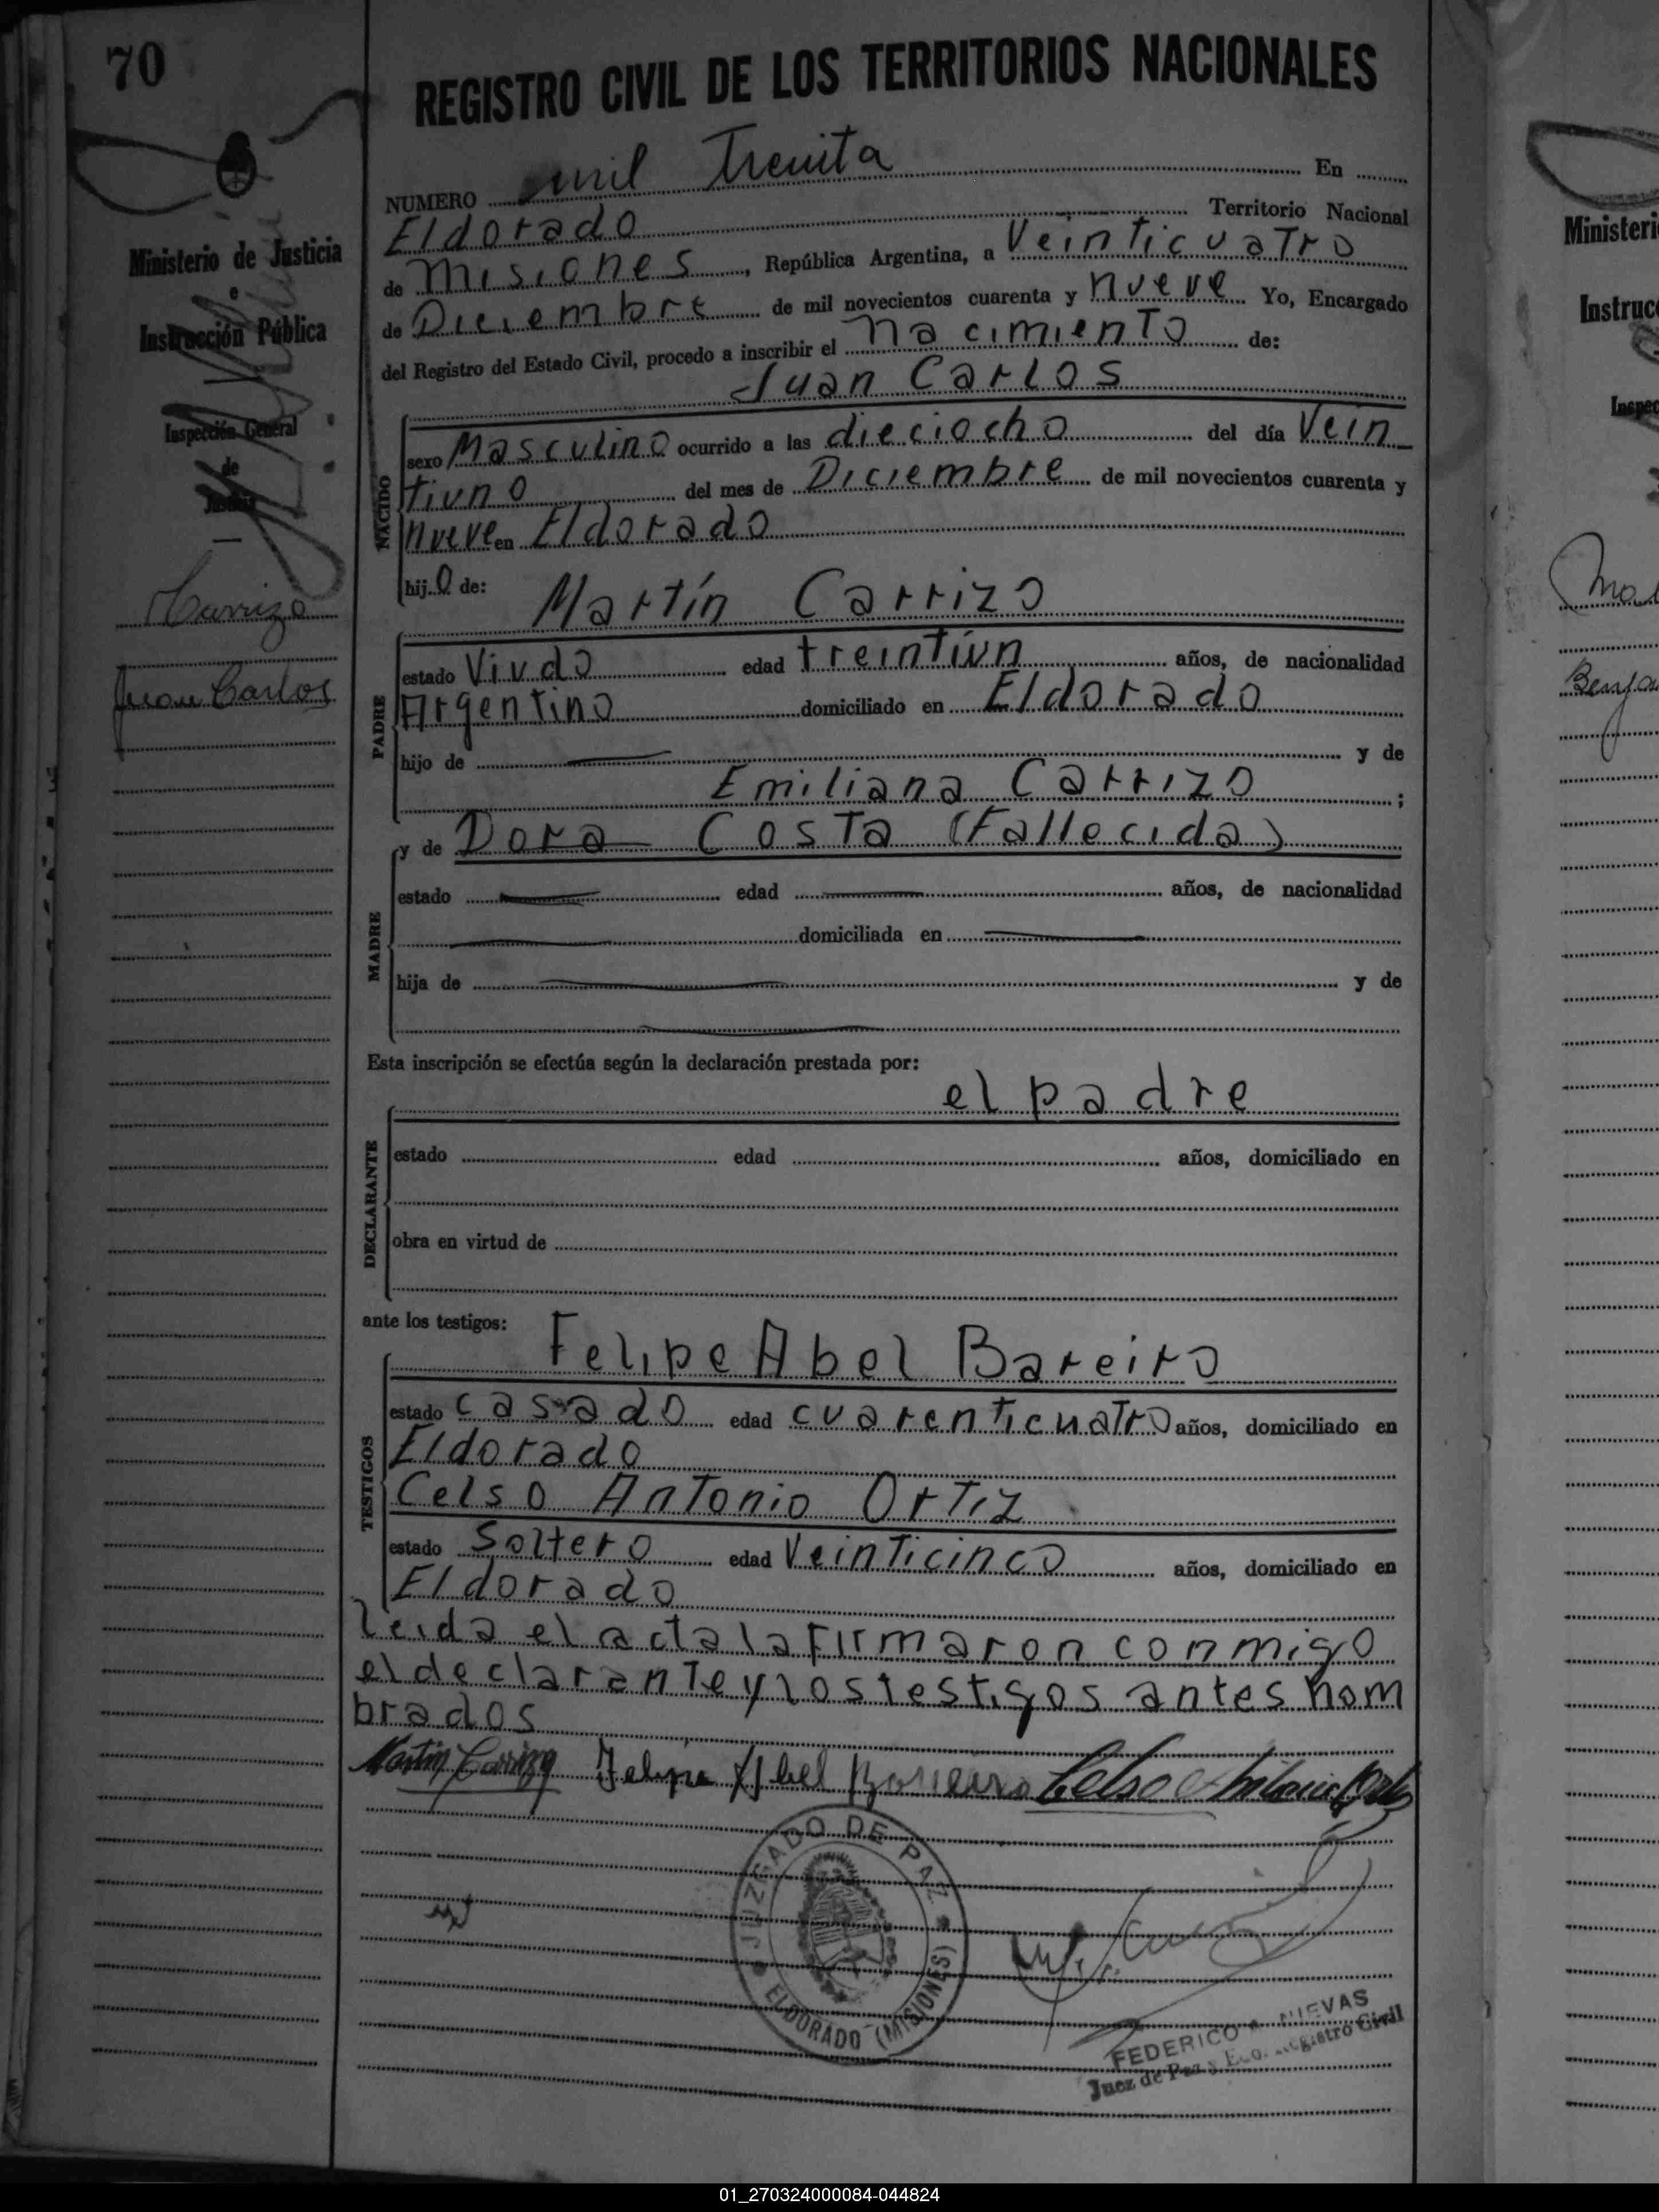 70
REGISTRO CIVIL DE LOS TERRITORIOS NACIONALES
NUMERO mil Treinta En
Eldorado Territorio Nacional
de Misiones, República Argentina, a Veinticuatro
de Diciembre de mil novecientos cuarenta y nueve Yo, Encargado
del Registro del Estado Civil, procedo a inscribir el nacimiento de:
Juan Carlos
NACIDO
sexo Masculino ocurrido a las dieciocho del día Vein
tiuno del mes de Diciembre de mil novecientos cuarenta y
nueve en Eldorado
hijo de: Martín Carrizo
PADRE
estado Viudo edad treintiun años, de nacionalidad
Argentino domiciliado en Eldorado
hijo de y de
Emiliana Carrizo ;
y de Dora Costa (Fallecida)
MADRE
estado edad años, de nacionalidad
domiciliada en
hija de y de
Esta inscripción se efectúa según la declaración prestada por:
el padre
DECLARANTE
estado edad años, domiciliado en
obra en virtud de
ante los testigos: Felipe Abel Bareiro
TESTIGOS
estado casado edad cuarenticuatro años, domiciliado en
Eldorado
Celso Antonio Ortiz
estado Soltero edad Veinticinco años, domiciliado en
Eldorado
leida el acta la firmaron conmigo
el declarante y los testigos antes nom
brados
Martín Carrizo Felipe Abel Bareiro Celso Antonio Ortiz
JUZGADO DE PAZ
ELDORADO (MISIONES)
FEDERICO NIEVAS
Juez de Paz y Registro Civil
Ministerio de Justicia
e
Instrucción Pública
Inspección General
de
Justicia
Carrizo
Juan Carlos
Ministeri
Instruc
Inspec
Benja
01_270324000084-044824